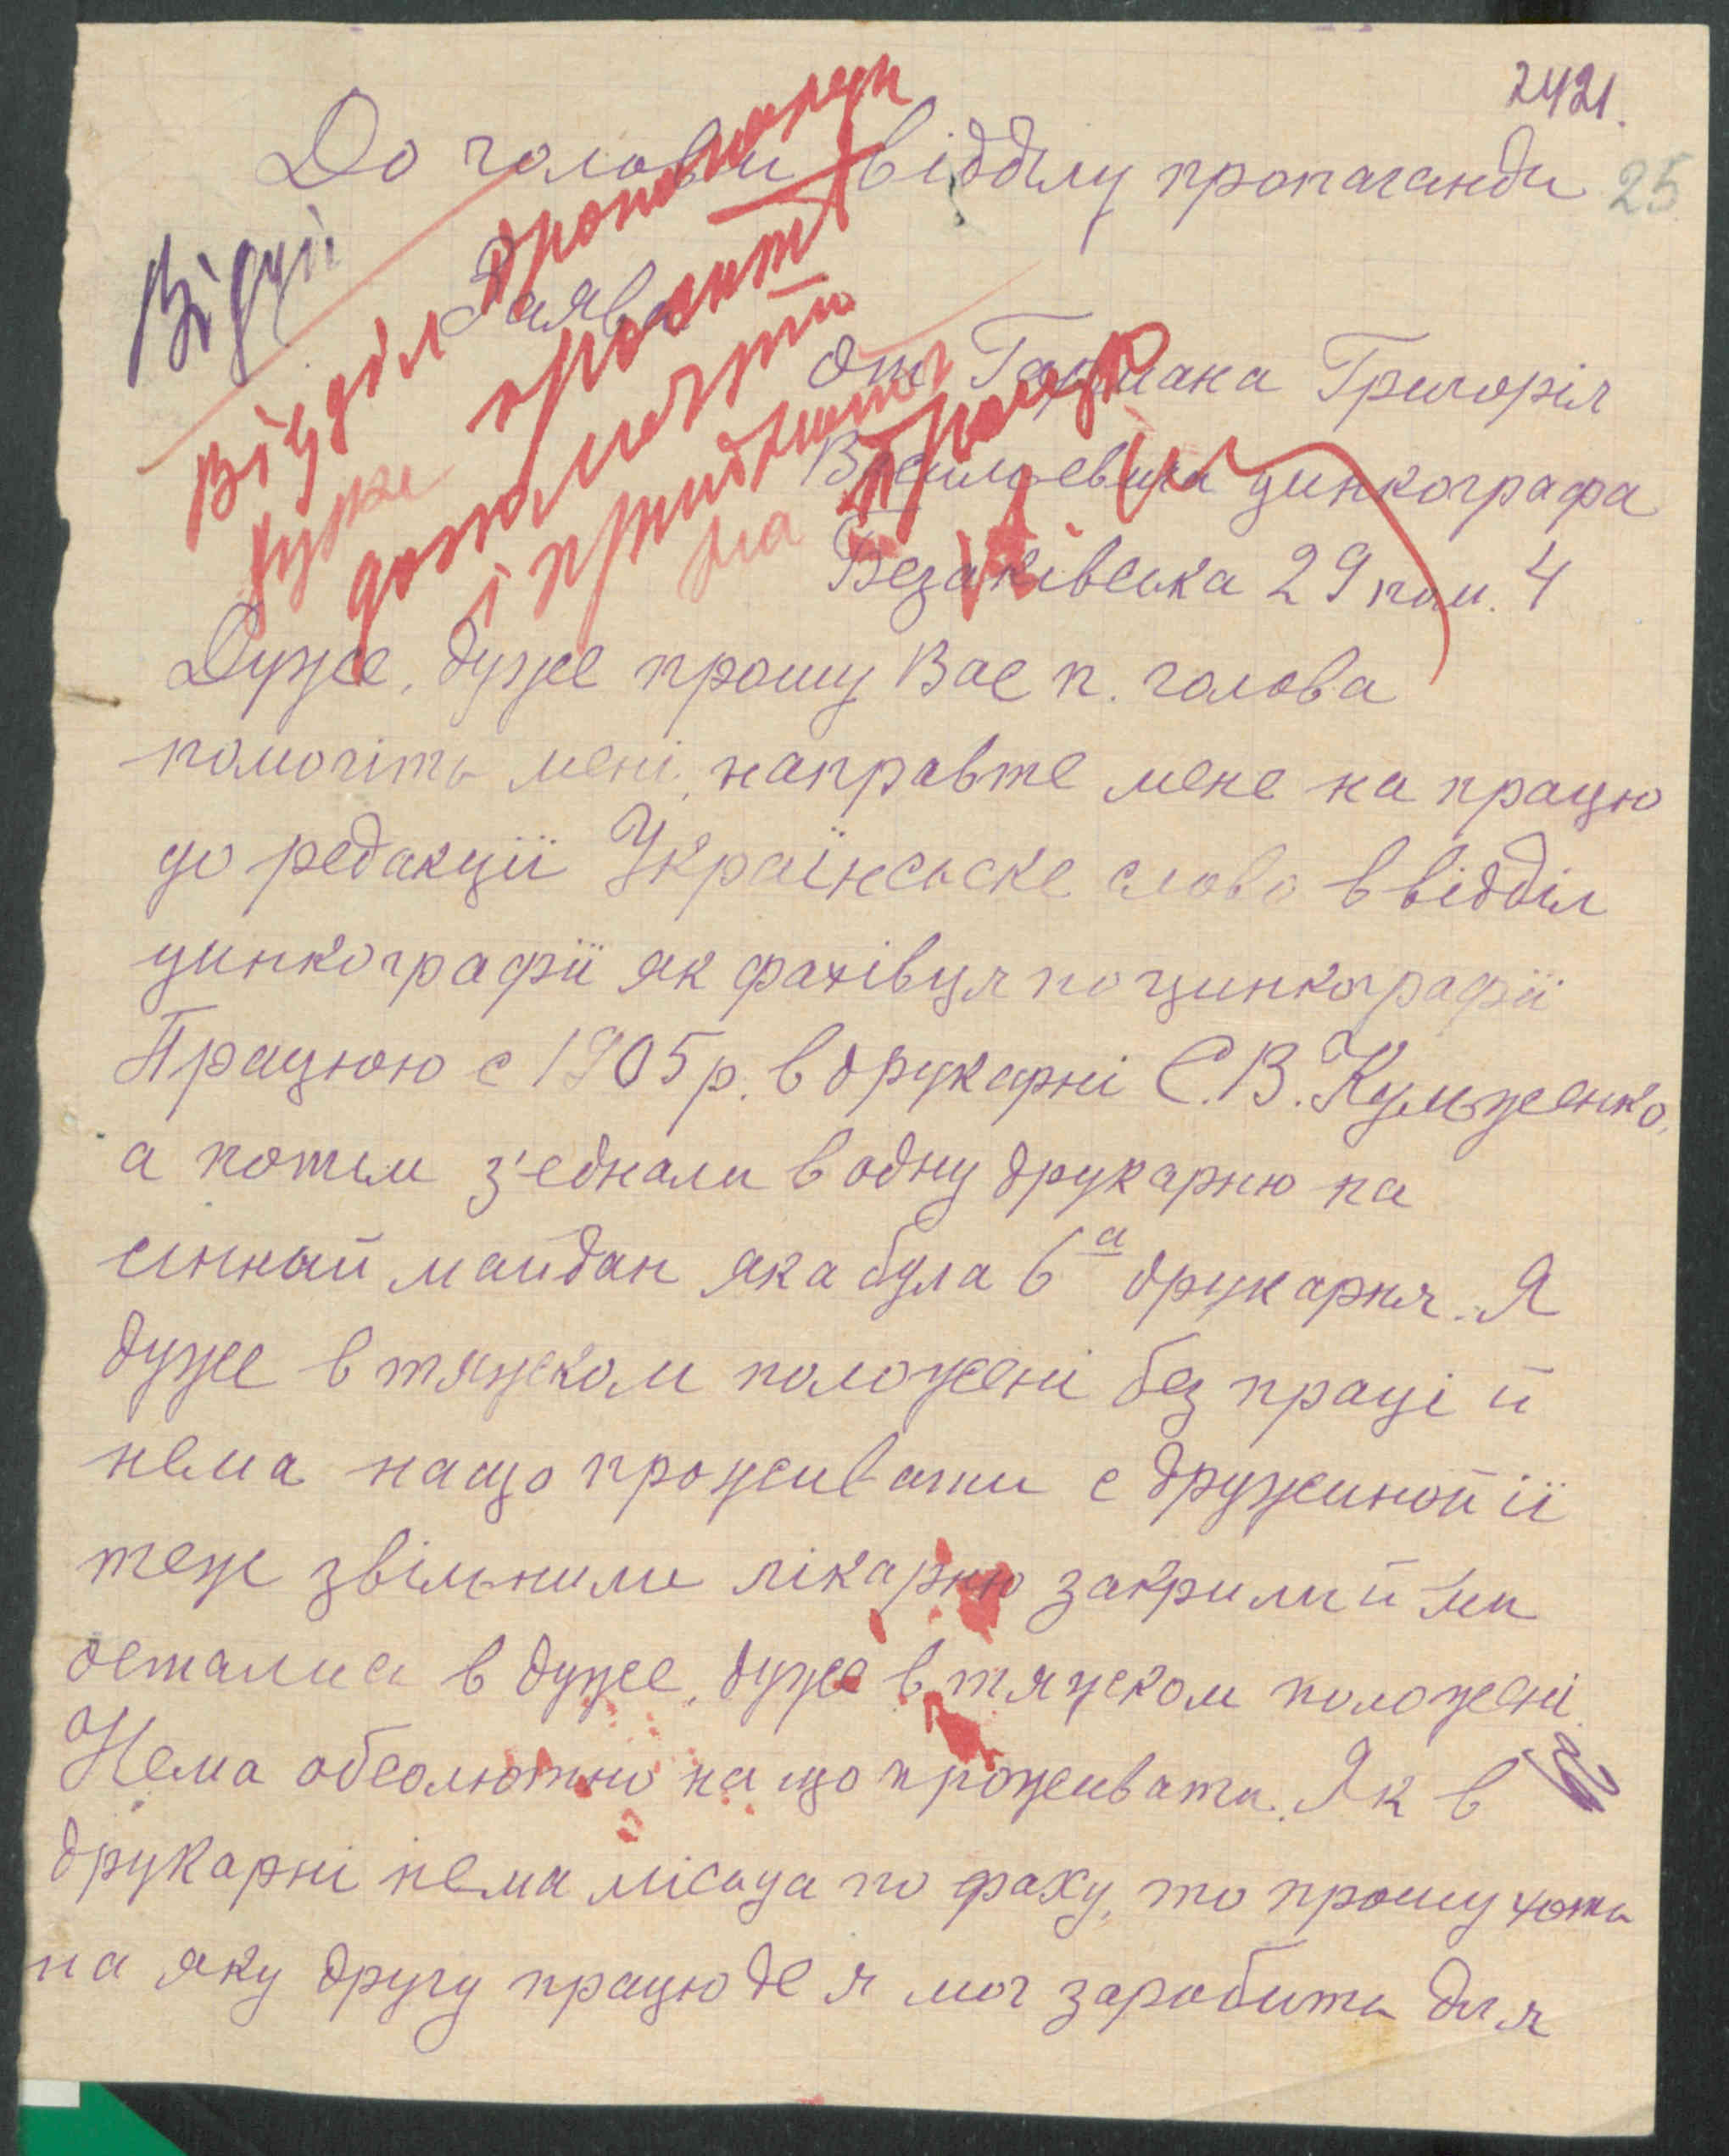 2421.
До голови відділу пропаганди
25
Відділ пропаганди
Заява
дуже просить
допомогти
і прийняти
на працю
От Григорія
Васильевича цинкографа
Безаківська 29 пом. 4
Дуже, дуже прошу Вас п. голова
помогіть мені, направте мене на працю
до редакції Українсьске слово в відділ
цинкографії як фахівця по цинкографії
Працюю с 1905 р. в друкарні С. В. Кульженко,
а потим з'еднали в одну друкарню на
синный майдан яка була 6а друкарня. Я
дуже в тяжком положені без праці й
нема нащо проживати с дружиной її
теж звільнили лікарню закрили й ми
остались в дуже, дуже в тяжком положені
Нема обсолютно на що проживати. Як в
друкарні нема місьця по фаху, то прошу хоть
на яку другу працю де я мог заробить для